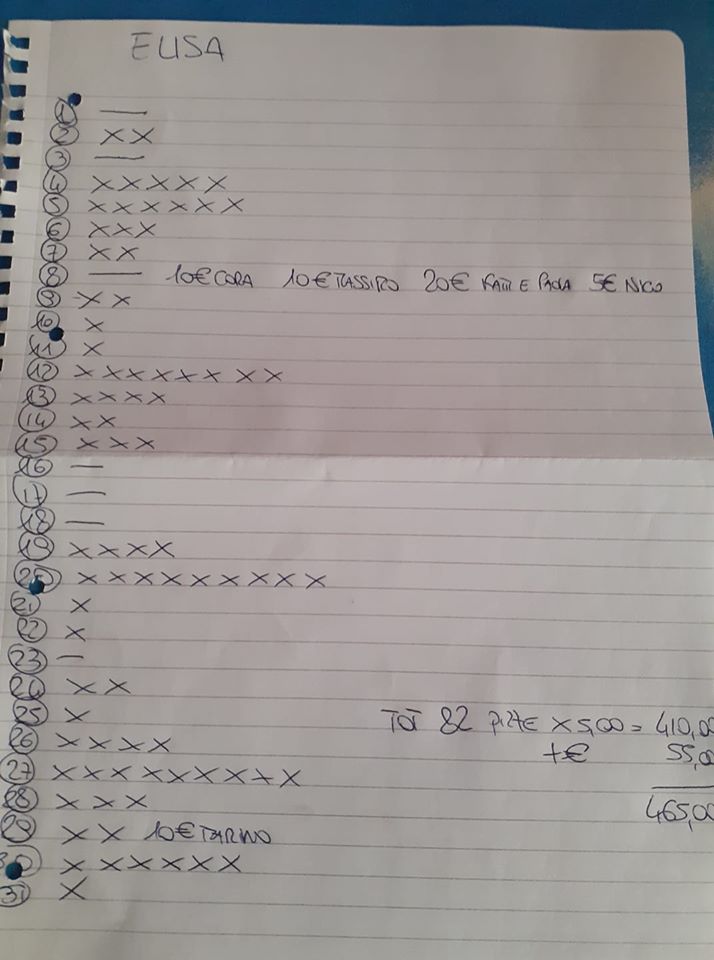 ELISA
1 —
2 XX
3 —
4 XXXXX
5 XXXXXX
6 XXX
7 XX
8 — 10€ CORA 10€ TASSIRO 20€ E PAOLA 5€ NICO
9 XX
10 X
11 X
12 XXXXXXXXX
13 XXXX
14 XX
15 XXX
16 —
17 —
18 —
19 XXXX
20 XXXXXXXXX
21 X
22 X
23 —
24 XX
25 X
TOT 82 PIZZE X 5,00 = 410,00
26 XXXX
+€ 55,00
27 XXXXXXXXX
28 XXX
465,00
29 XX 10€ TARINO
30 XXXXXX
31 X